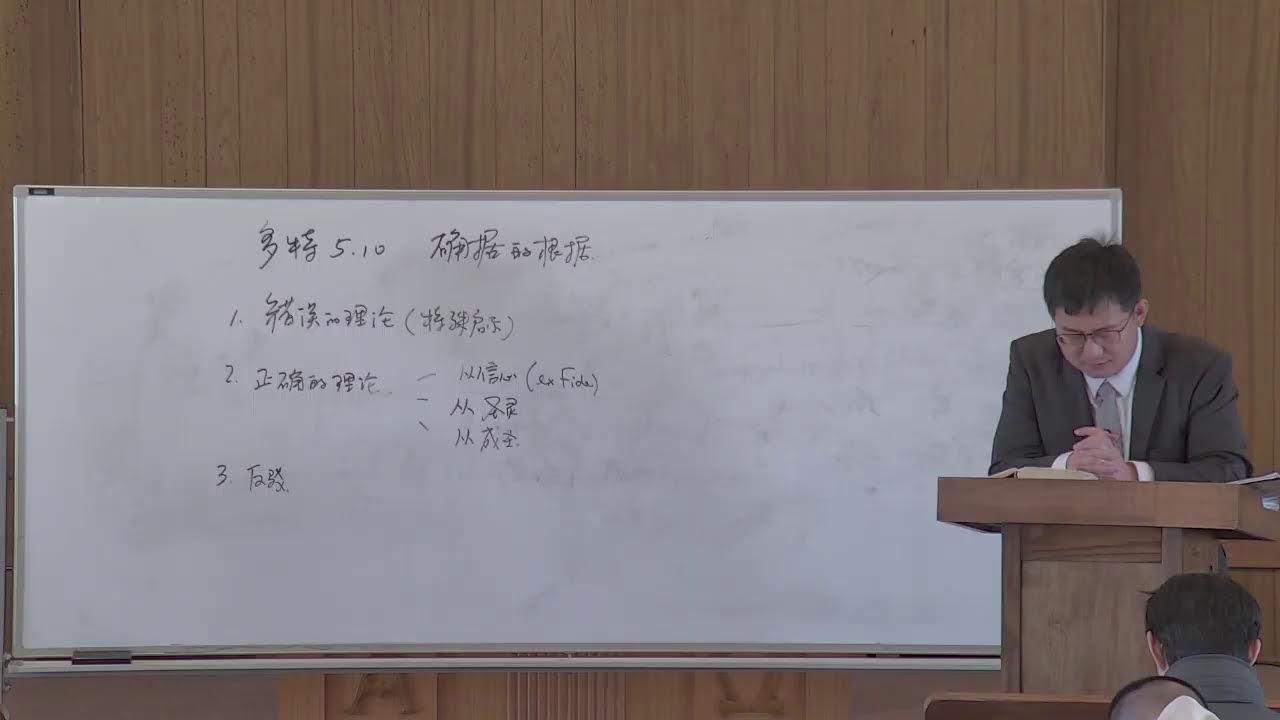 多特 5.10 确据的根据.
1. 错误的理论 (特殊启示)
2. 正确的理论. - 从信心 (ex Fide)
- 从圣灵
- 从成圣.
3. 反驳.